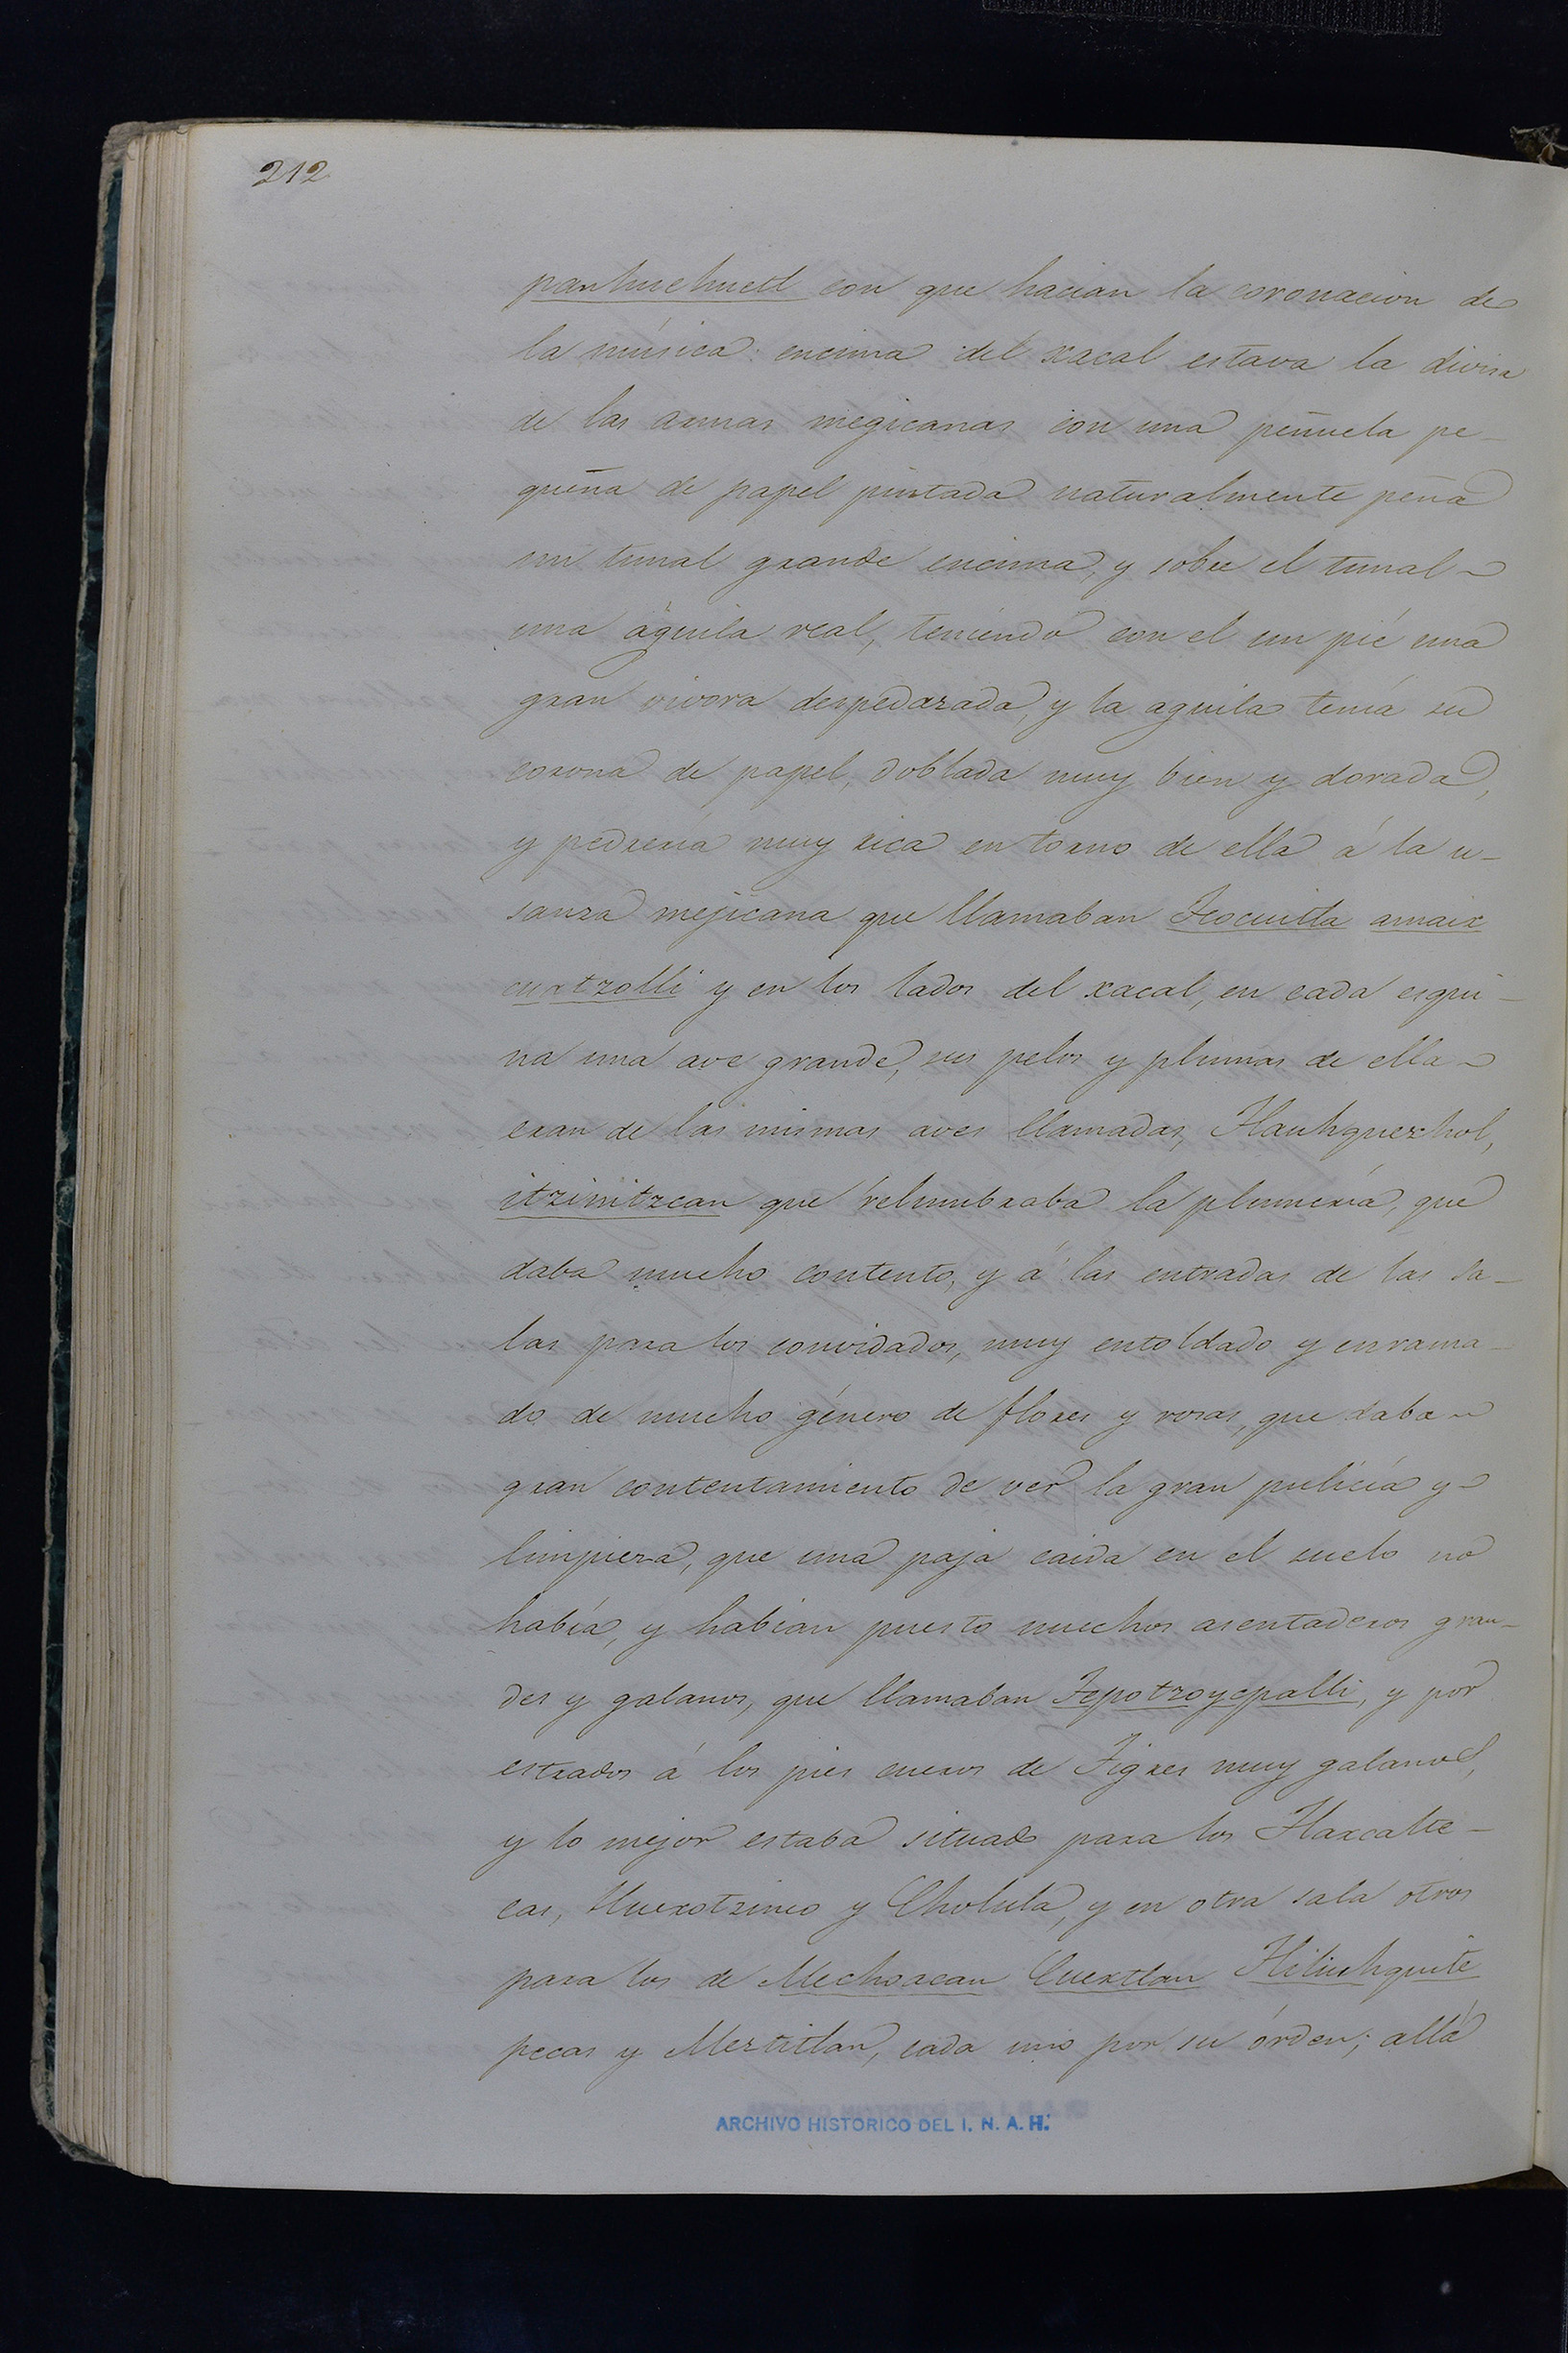 212
panhuehuetl con que hacian la coronacion de
la música: encima del xacal estava la divisa
de las armas megicanas con una peñuela pe-
queña de papel pintada naturalmente peña
un tunal grande encima, y sobre el tunal
una águila real, teniendo con el un pié una
gran vivora despedazada, y la aguila tenía su
corona de papel, doblada muy bien y dorada,
y pedrería muy rica en torno de ella á la u-
sanza mejicana que llamaban Teocuitla amaix
cuatzolli y en los lados del xacal, en cada esqui-
na una ave grande, sus pelos y plumas de ella
eran de las mismas aves llamadas, Tlauhquezhol,
itzinitzcan que relumbraba la plumería, que
daba mucho contento, y á las entradas de las sa-
las para los convidados, muy entoldado y enrama-
do de mucho género de flores y rosas, que daban
gran contentamiento de ver la gran pulicía y
limpieza, que una paja caida en el suelo no
había, y habian puesto muchos asentaderos gran-
des y galanos, que llamaban Tepotzoycpalli, y por
estrados á los pies cueros de Tigres muy galanos,
y lo mejor estaba situado para los Tlaxcalte-
cas, Huexotzinco y Cholula, y en otra sala otros
para los de Mechoacan Cuextlan Tliliuhquite
pecas y Meztitlan, cada uno por su órden; allá
ARCHIVO HISTORICO DEL I. N. A. H.